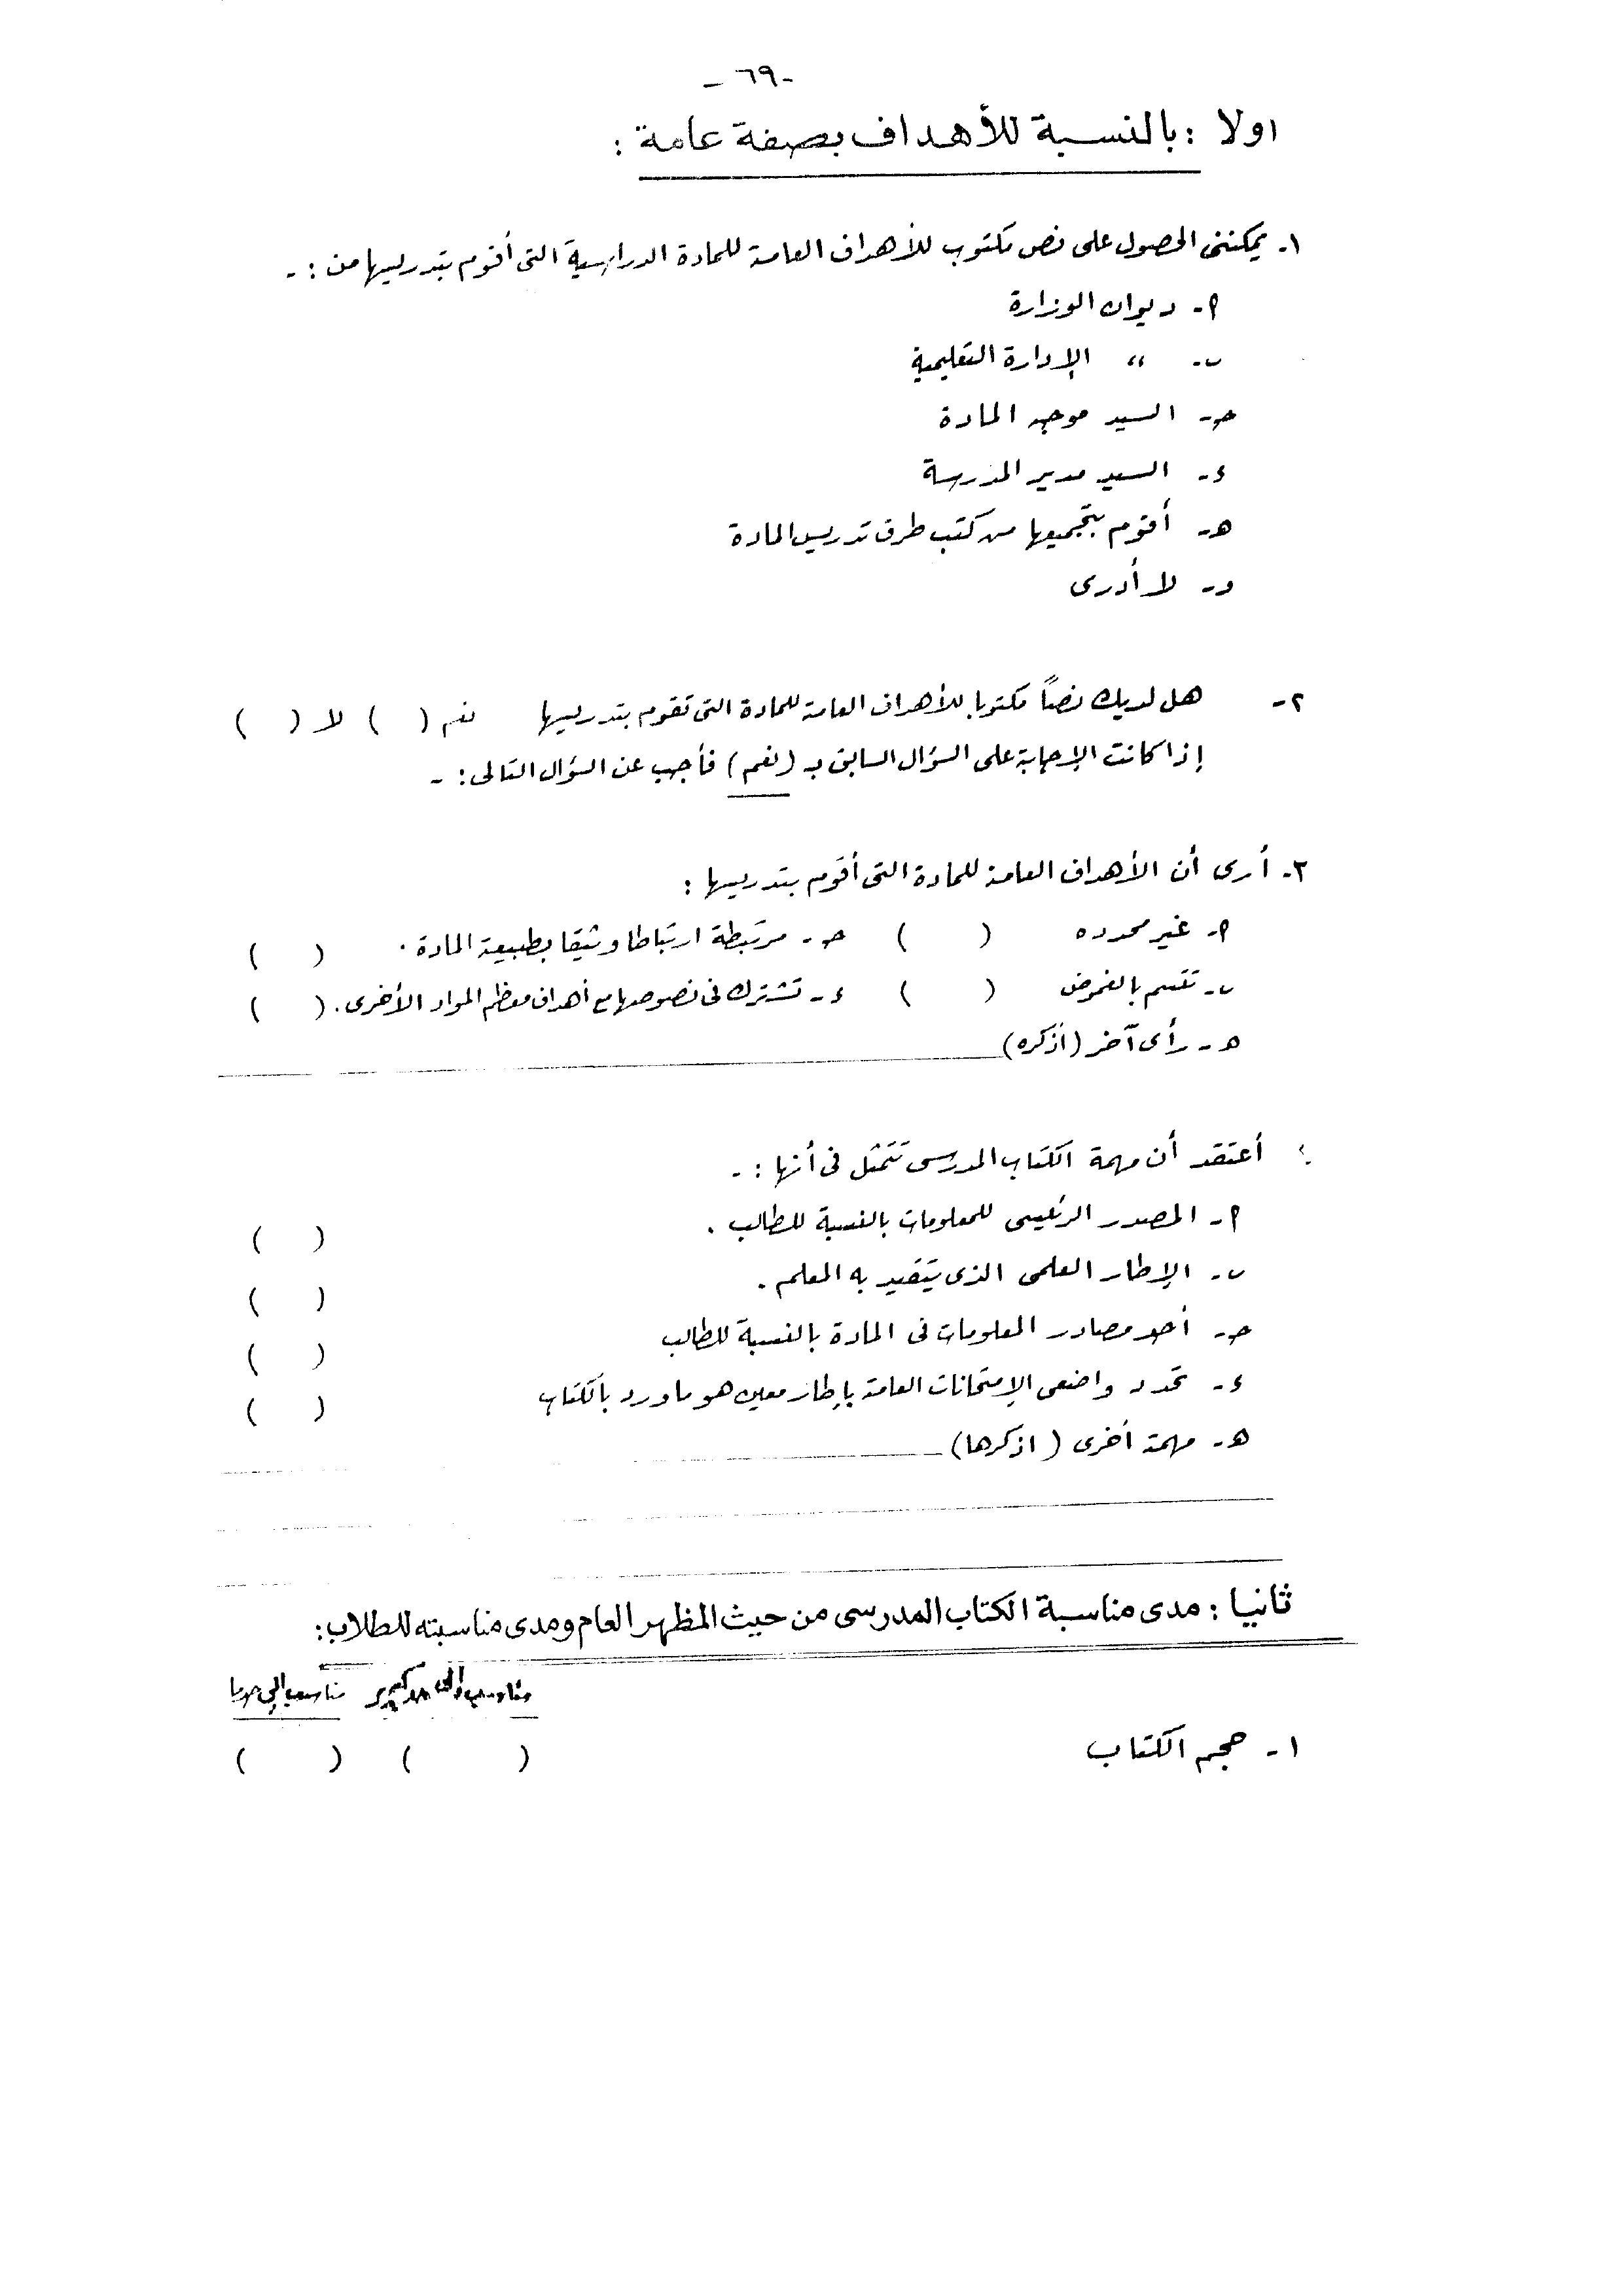 - ٦٩ -
اولا : بالنسبة للأهداف بصفة عامة :
١- يمكننى الحصول على نص مكتوب للأهداف العامة للمادة الدراسية التى أقوم بتدريسها من : -
٢- ديوان الوزارة
ب- " الإدارة التعليمية
حـ- السيد موجه المادة
ء- السيد مدير المدرسة
هـ- أقوم بتجميعها من كتب طرق تدريس المادة
و- لا أدرى
٢- هل لديك نصاً مكتوبا للأهداف العامة للمادة التى تقوم بتدريسها نعم ( ) لا ( )
إذا كانت الإجابة على السؤال السابق بـ (نعم) فأجب عن السؤال التالى : -
٣- أرى أن الأهداف العامة للمادة التى أقوم بتدريسها :
٢- غير محدده ( ) حـ- مرتبطة ارتباطا وثيقا بطبيعة المادة . ( )
ب- تتسم بالغموض ( ) ء- تشترك فى نصوصها مع أهداف معظم المواد الأخرى . ( )
هـ- رأى آخر (أذكره)
أعتقد أن مهمة الكتاب المدرسى تتمثل فى أنها : -
٢- المصدر الرئيسى للمعلومات بالنسبة للطالب . ( )
ب- الإطار العلمى الذى يتقيد به المعلم . ( )
حـ- أحد مصادر المعلومات فى المادة بالنسبة للطالب ( )
ء- تحدد واضعى الإمتحانات العامة بإطار معين هو ما ورد بالكتاب ( )
هـ- مهمة أخرى ( اذكرها)
ثانيا : مدى مناسبة الكتاب المدرسى من حيث المظهر العام ومدى مناسبته للطلاب :
مناسب إلى حد كبير مناسب إلى حد ما
١- حجم الكتاب ( ) ( )